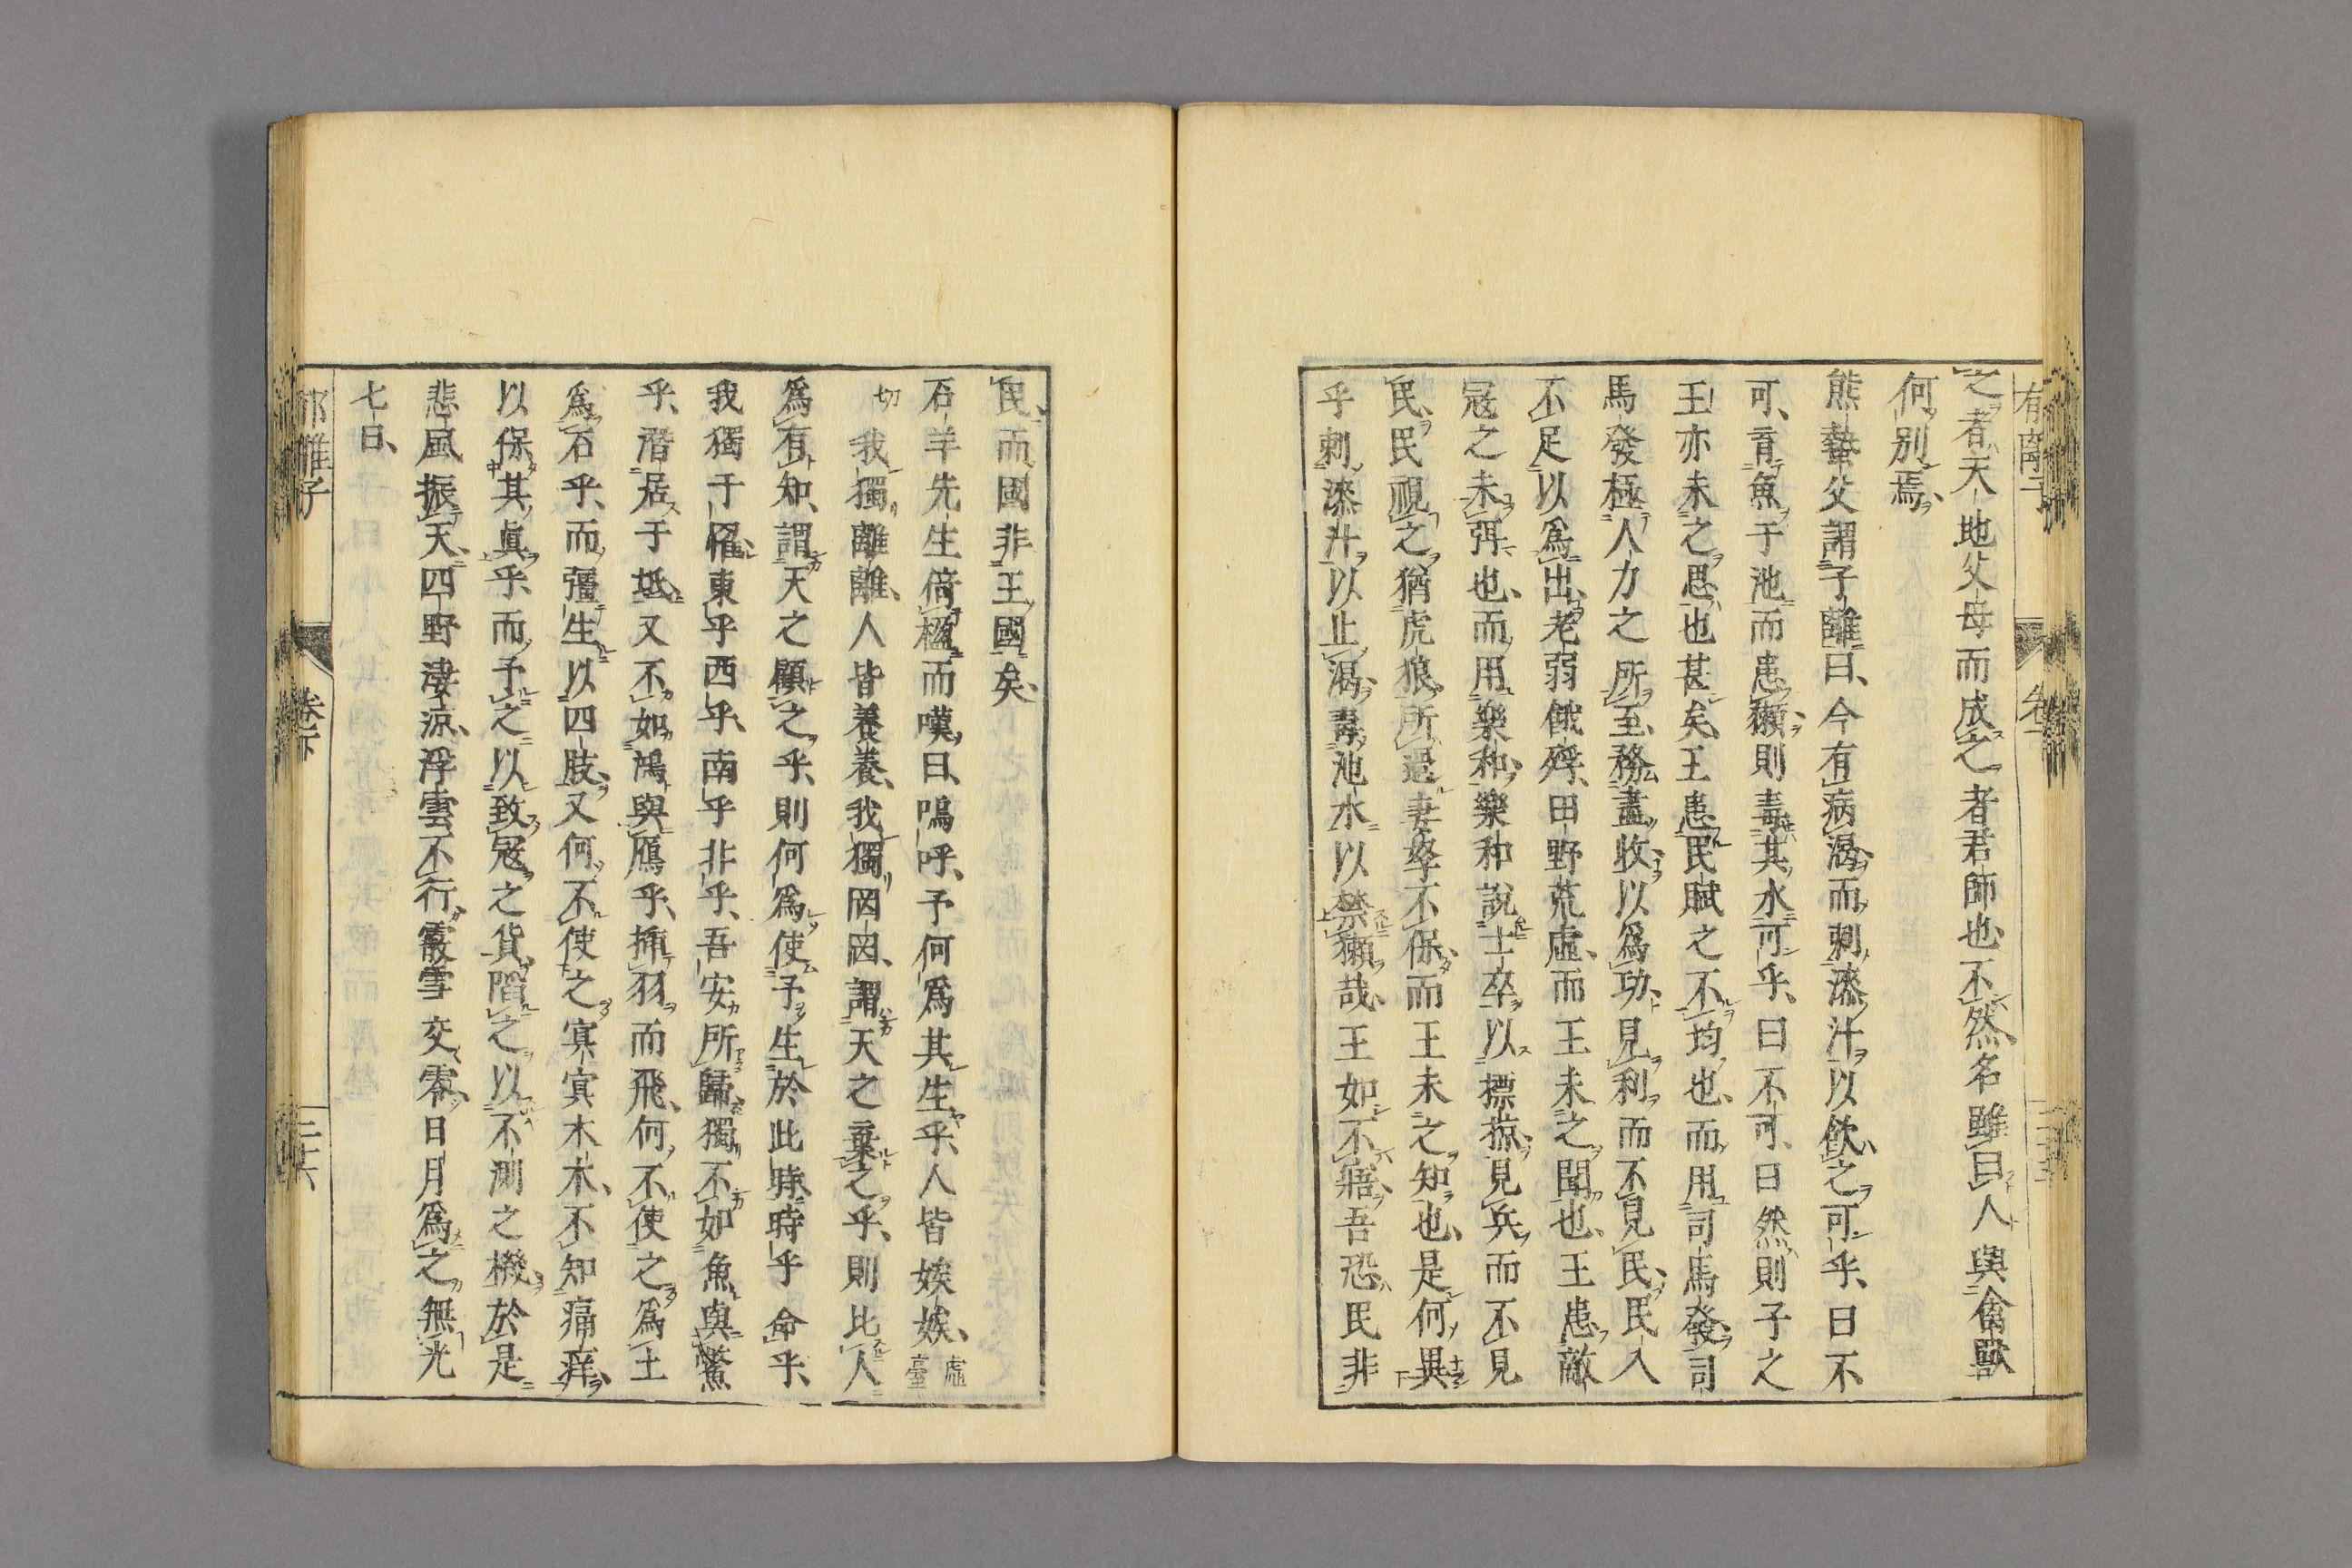 之者天地父母而成之者君師也不然名雖曰人與禽獸
何別焉
熊蟄父謂子離曰今有病渴而刺漆汁以飲之可乎曰不
可育魚于池而患獺則毒其水可乎曰不可曰然則子之
王亦未之思也甚矣王患民賦之不均也而用司馬發司
馬發極人力之所至務盡收以爲功見利而不見民民入
不足以爲出老弱餓殍田野荒虛而王未之聞也王患敵
寇之未弭也而用樂和樂和說士卒以摽掠見兵而不見
民民視之猶虎狼所過妻孥不保而王未之知也是何異
乎刺漆汁以止渴毒池水以禁獺哉王如不寤吾恐民非
民而國非王國矣
石羊先生倚楹而嘆曰嗚呼予何爲其生乎人皆娭娭虛臺
切我獨離離人皆養養我獨罔罔謂天之棄之乎則比人
爲有知謂天之顧之乎則何爲使予生於此時時乎命乎
我獨于罹東乎西乎南乎北乎吾安所歸獨不如魚與鱉
乎潛居于坻又不如鴻與鴈乎插羽而飛何不使之爲土
爲石乎而彊生以四肢又何不使之冥冥木木不知痛痒
以保其眞乎而予之以致寇之貨陷之以不測之機於是
悲風振天四野淒涼浮雲不行霰雪交零日月爲之無光
七日
郁離子
卷下
二十六